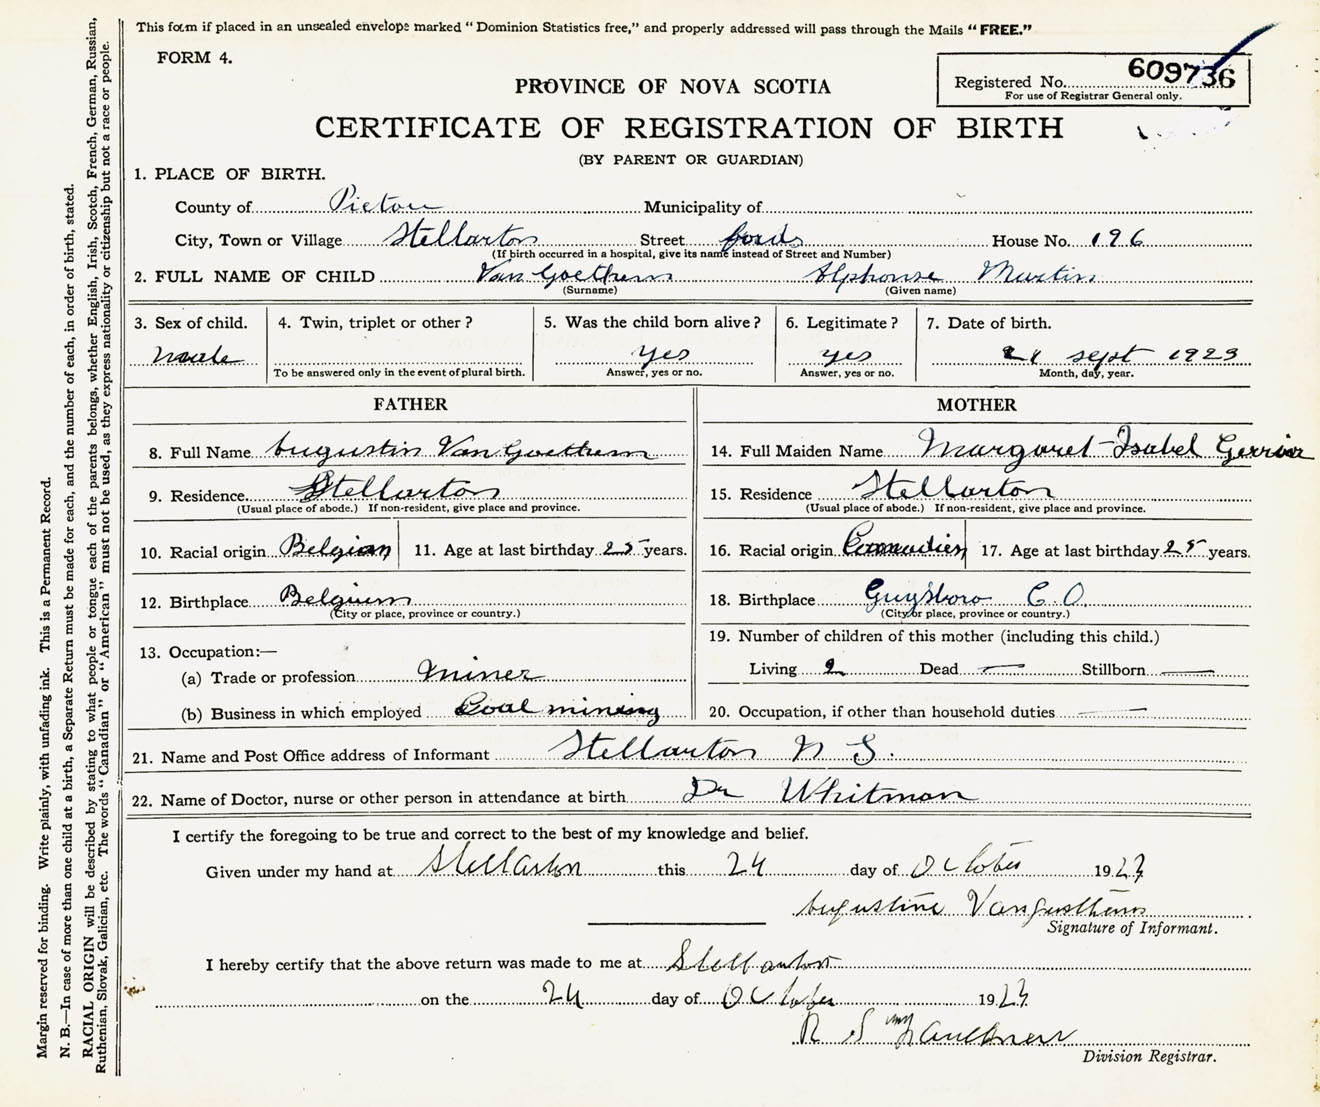 This form if placed in an unsealed envelope marked "Dominion Statistics free," and properly addressed will pass through the Mails "FREE."
FORM 4.
Registered No. 609736
For use of Registrar General only.
PROVINCE OF NOVA SCOTIA
CERTIFICATE OF REGISTRATION OF BIRTH
(BY PARENT OR GUARDIAN)
1. PLACE OF BIRTH.
County of Pictou Municipality of
City, Town or Village Stellarton Street House No. 196
(If birth occurred in a hospital, give its name instead of Street and Number)
2. FULL NAME OF CHILD Van Goethem Alphonse Martin
(Surname) (Given name)
3. Sex of child. 4. Twin, triplet or other? 5. Was the child born alive? 6. Legitimate? 7. Date of birth.
male yes yes 21 sept 1923
To be answered only in the event of plural birth. Answer, yes or no. Answer, yes or no. Month, day, year.
FATHER MOTHER
8. Full Name Augustin Van Goethem 14. Full Maiden Name Margaret Isabel
9. Residence Stellarton 15. Residence Stellarton
(Usual place of abode.) If non-resident, give place and province. (Usual place of abode.) If non-resident, give place and province.
10. Racial origin Belgian 11. Age at last birthday 25 years. 16. Racial origin Canadien 17. Age at last birthday 25 years.
12. Birthplace Belgium 18. Birthplace Guysboro C.O.
(City or place, province or country.) (City or place, province or country.)
19. Number of children of this mother (including this child.)
13. Occupation:—
(a) Trade or profession miner Living 2 Dead — Stillborn —
(b) Business in which employed Coal mining 20. Occupation, if other than household duties —
21. Name and Post Office address of Informant Stellarton N S.
22. Name of Doctor, nurse or other person in attendance at birth Dr Whitman
I certify the foregoing to be true and correct to the best of my knowledge and belief.
Given under my hand at Stellarton this 24 day of October 1923
Augustine Vangoethem
Signature of Informant.
I hereby certify that the above return was made to me at Stellarton
on the 24 day of October 1923
R S
Division Registrar.
Margin reserved for binding. Write plainly, with unfading ink. This is a Permanent Record.
N. B.—In case of more than one child at a birth, a Separate Return must be made for each, and the number of each, in order of birth, stated.
RACIAL ORIGIN will be described by stating to what people or tongue each of the parents belongs, whether English, Irish, Scotch, French, German, Russian,
Ruthenian, Slovak, Galician, etc. The words "Canadian" or "American" must not be used, as they express nationality or citizenship but not a race or people.